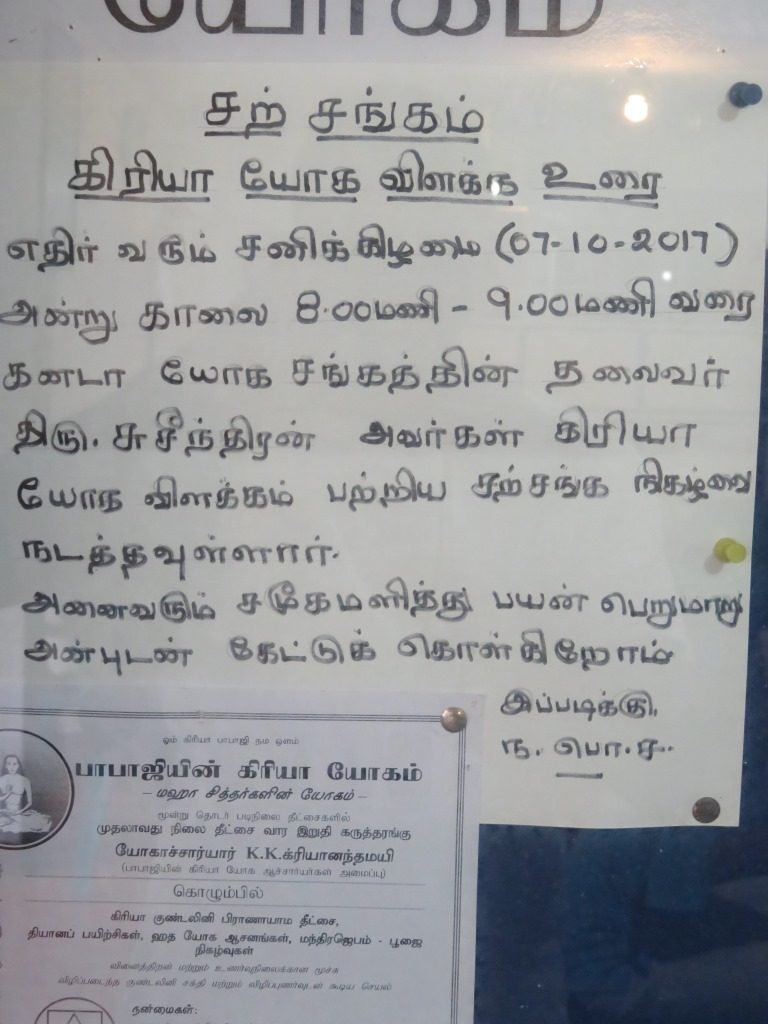 யோகம்
சற் சங்கம்
கிரியா யோக விளக்க உரை
எதிர் வரும் சனிக்கிழமை (07-10-2017)
அன்று காலை 8.00மணி - 9.00மணி வரை
கனடா யோக சங்கத்தின் தலைவர்
திரு. சுசீந்திரன் அவர்கள் கிரியா
யோக விளக்கம் பற்றிய சற்சங்க நிகழ்வை
நடத்தவுள்ளார்.
அனைவரும் சமூகமளித்து பயன் பெறுமாறு
அன்புடன் கேட்டுக் கொள்கிறோம்
அப்படிக்கு,
ந. பொ. ச.
ஓம் கிரியா பாபாஜி நம ஔம்
பாபாஜியின் கிரியா யோகம்
– மஹா சித்தர்களின் யோகம் –
மூன்று தொடர் படிநிலை தீட்சைகளில்
முதலாவது நிலை தீட்சை வார இறுதி கருத்தரங்கு
யோகாச்சார்யார் K.K.க்ரியானந்தமயி
(பாபாஜியின் கிரியா யோக ஆச்சார்யர்கள் அமைப்பு)
கொழும்பில்
கிரியா குண்டலினி பிராணாயாம தீட்சை,
தியானப் பயிற்சிகள், ஹத யோக ஆசனங்கள், மந்திரஜெபம் - பூஜை
நிகழ்வுகள்
வினைத்திறன் மற்றும் உணர்வுநிலைக்கான மூச்சு
விழிப்படைந்த குண்டலினி சக்தி மற்றும் விழிப்புணர்வுடன் கூடிய செயல்
நன்மைகள்: